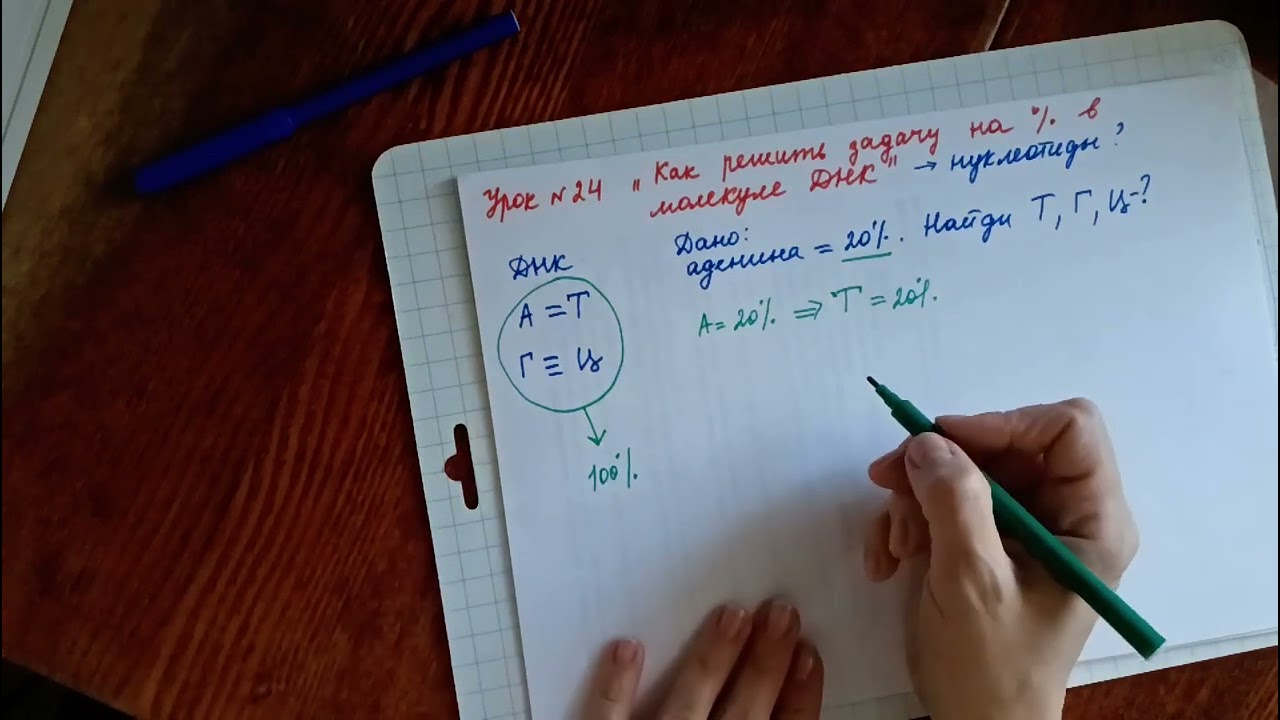 Урок №24 "Как решить задачу на % в
молекуле ДНК" → нуклеотиды?
Дано:
аденина = 20%. Найди Т, Г, Ц-?
ДНК
А = Т
Г ≡ Ц
100%.
А = 20% ⇒ Т = 20%.